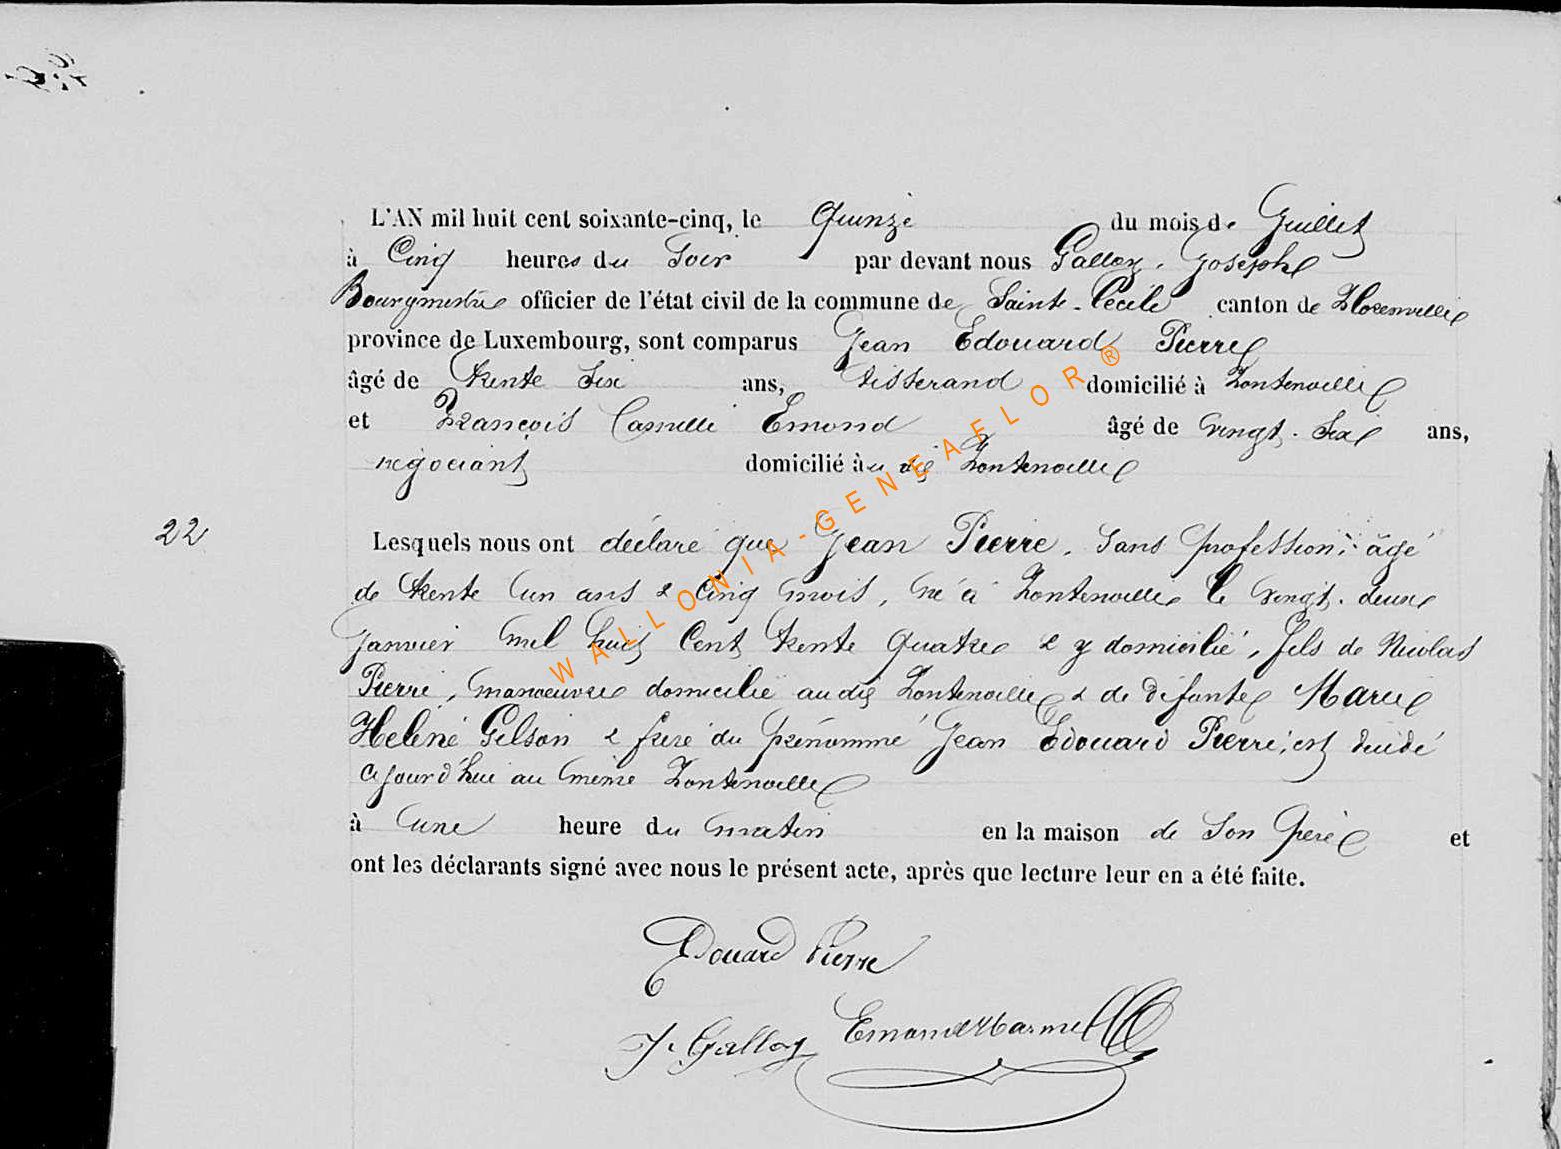 L'AN mil huit cent soixante-cinq, le Quinze du mois de Juillet
à Cinq heures du Soir par devant nous Galloy, Joseph
Bourgmestre officier de l'état civil de la commune de Sainte-Cécile canton de Florenville
province de Luxembourg, sont comparus Jean Edouard Pierre
âgé de trente six ans, tisserand domicilié à Fontenoille
et François Camille Emond âgé de vingt-six ans,
négociant domicilié au dit Fontenoille
22
Lesquels nous ont déclaré que Jean Pierre, sans profession, âgé
de trente un ans & cinq mois, né à Fontenoille le vingt-deux
Janvier mil huit cent trente quatre & y domicilié, fils de Nicolas
Pierre, manoeuvre domicilié au dit Fontenoille & de défunte Marie
Helène Gilson & frère du prénommé Jean Edouard Pierre, est décédé
cejourd'hui au même Fontenoille
à une heure du matin en la maison de son père et
ont les déclarants signé avec nous le présent acte, après que lecture leur en a été faite.
Edouard Pierre
J. Galloy Emond
WALLONIA-GENEAFLOR®